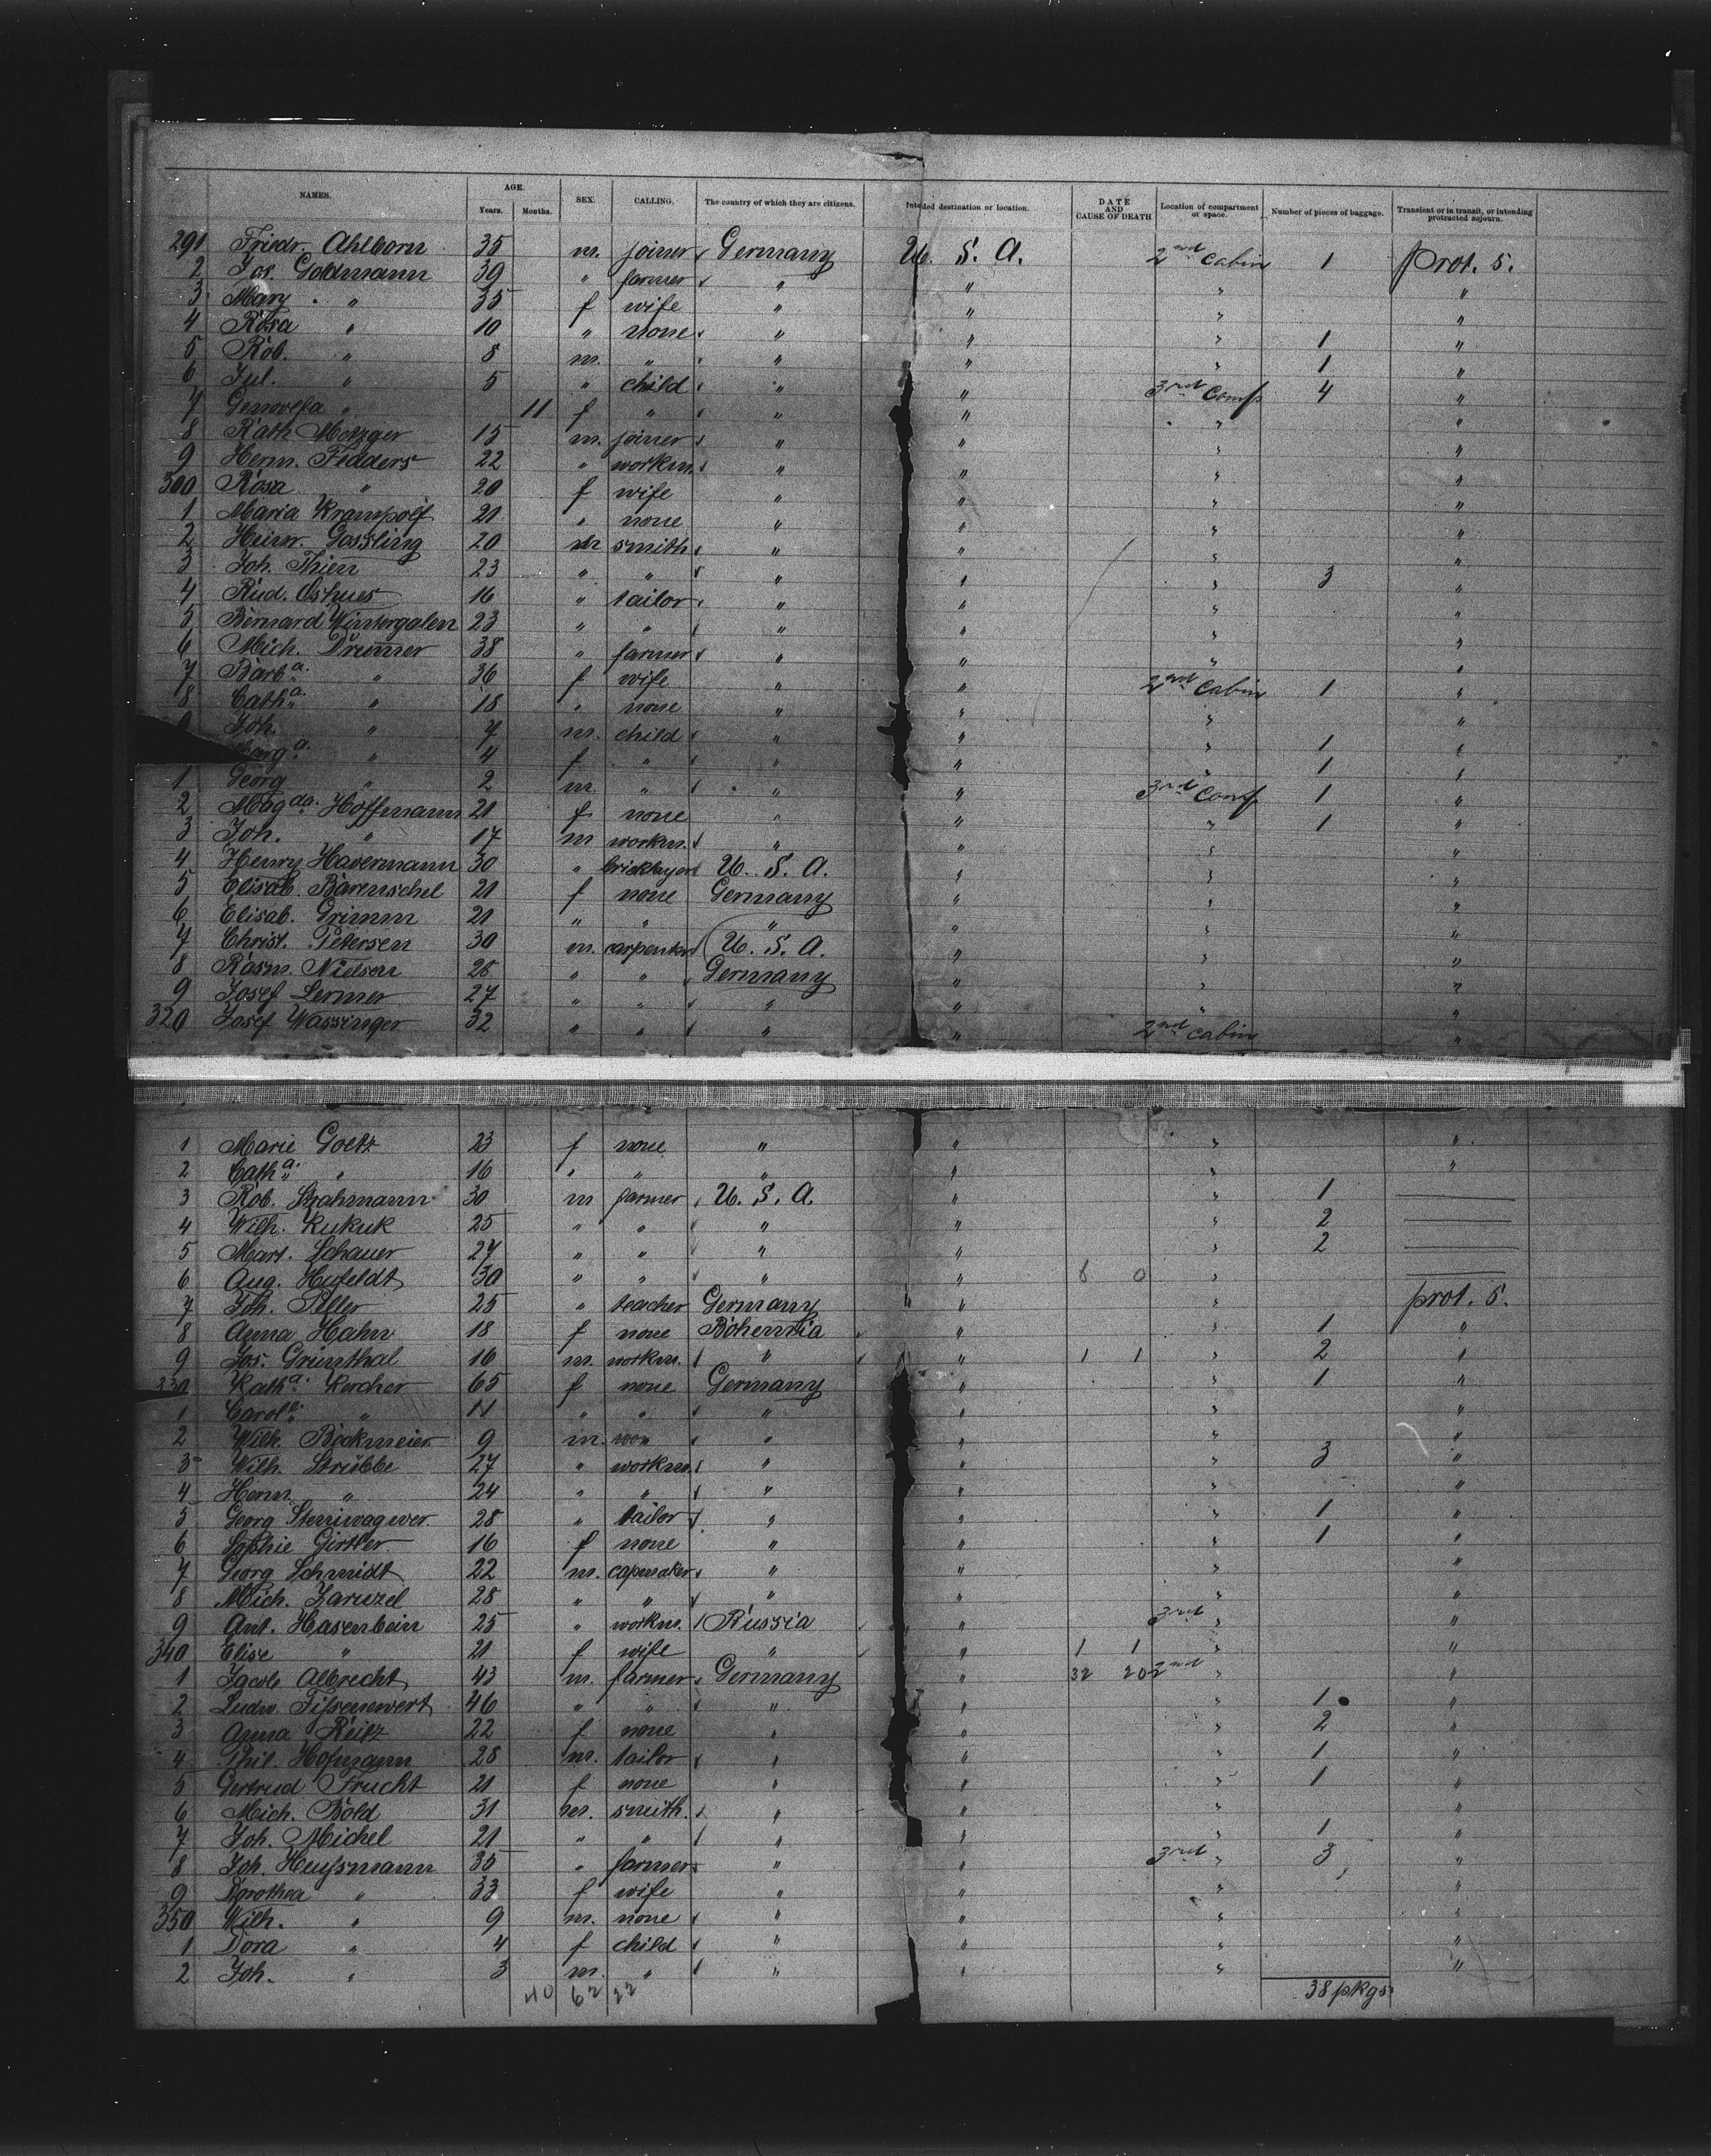 NAMES. AGE. Years. Months. SEX. CALLING. The country of which they are citizens. Intended destination or location. DATE AND CAUSE OF DEATH Location of compartment or space. Number of pieces of baggage. Transient or in transit, or intending protracted sojourn.
291 Friedr. Ahlborn 35 m. joiner Germany U. S. A. 2nd cabin 1 prot. s.
2 Jos. Goldmann 39 " farmer " " " "
3 Mary " 35 f wife " " " "
4 Rosa " 10 " none " " " 1 "
5 Rob. " 8 m. " " " " 1 "
6 Jul. " 5 " child " " 3rd Comp 4 "
7 Genovefa " 11 f " " " " "
8 Kath Metzger 15 m. joiner " " " "
9 Herm. Fedders 22 " workm. " " " "
300 Rosa " 20 f wife " " " "
1 Maria 21 " none " " " "
2 Heinr. Gossling 20 m smith " " " "
3 Joh. Thien 23 " " " " " 3 "
4 Rud. Oshues 16 " tailor " " " "
5 Bernard Wintergalen 23 " " " " " "
6 Mich. Drummer 38 " farmer " " " "
7 Barba. " 36 f wife " " 2nd cabin 1 "
8 Catha. " 18 " none " " " "
9 Joh. " 7 m. child " " " 1 "
Marga. " 4 f " " " " 1 "
1 Georg " 2 m. " " " 3rd Comp 1 "
2 Magda. Hoffmann 21 f none " " " 1 "
3 Joh. " 17 m workm. " " " "
4 Henry Havermann 30 " bricklayer U. S. A. " " "
5 Elisab. Bärenschel 21 f none Germany " " "
6 Elisab. Grimm 21 " " " " " "
7 Christ. Petersen 30 m. carpenter U. S. A. " " "
8 Rasm. Nielsen 28 " " Germany " " "
9 Josef Lermer 27 " " " " " "
320 Josef Wassinger 32 " " " " 2nd cabin "
1 Marie Goetz 23 f none " " " "
2 Catha. " 16 " " " " " "
3 Rob. Strahmann 30 m farmer U. S. A. " " 1
4 Wilh. Kukuk 25 " " " " " 2
5 Mart. Schauer 27 " " " " " 2
6 Aug. Hufeldt 30 " " " " 8 0 "
7 Joh. 25 " teacher Germany " " prot. s.
8 Anna Hahn 18 f none Bohemia " " 1 "
9 Jos. Grünthal 16 m. workm. " " 1 1 " 2 "
330 Katha. Kercher 65 f none Germany " " 1 "
1 Carole. " 11 " " " " " "
2 Wilh. Böckmeier 9 m. non " " " "
3 Wilh. Strübbe 27 " workm. " " " 3 "
4 Herm. " 24 " " " " " "
5 Georg 28 " tailor " " " 1 "
6 Sophie Girtler 16 f none " " " 1 "
7 Georg Schmidt 22 m. capmaker " " " "
8 Mich. 28 " " " " " "
9 Ant. Hasenbein 25 " workm. Russia " 3rd " "
340 Elise " 21 f wife " " 1 1 " "
1 Jacob Albrecht 43 m. farmer Germany " 32 20 2nd " "
2 Ludw. Tissenwert 46 " " " " " 1 "
3 Anna Reitz 22 f none " " " 2 "
4 Phil. Hofmann 28 m. tailor " " " 1 "
5 Gertrud Frucht 21 f none " " " 1 "
6 Mich. Bold 31 m. smith. " " " "
7 Joh. Michel 21 " " " " " 1 "
8 Joh. Heussmann 35 " farmer " " 3rd " 3 "
9 Dorothea " 33 f wife " " " "
350 Wilh. " 9 m. none " " " "
1 Dora " 4 f child " " " "
2 Joh. " 3 m. " " " " "
40 62 22 38 pkgs.